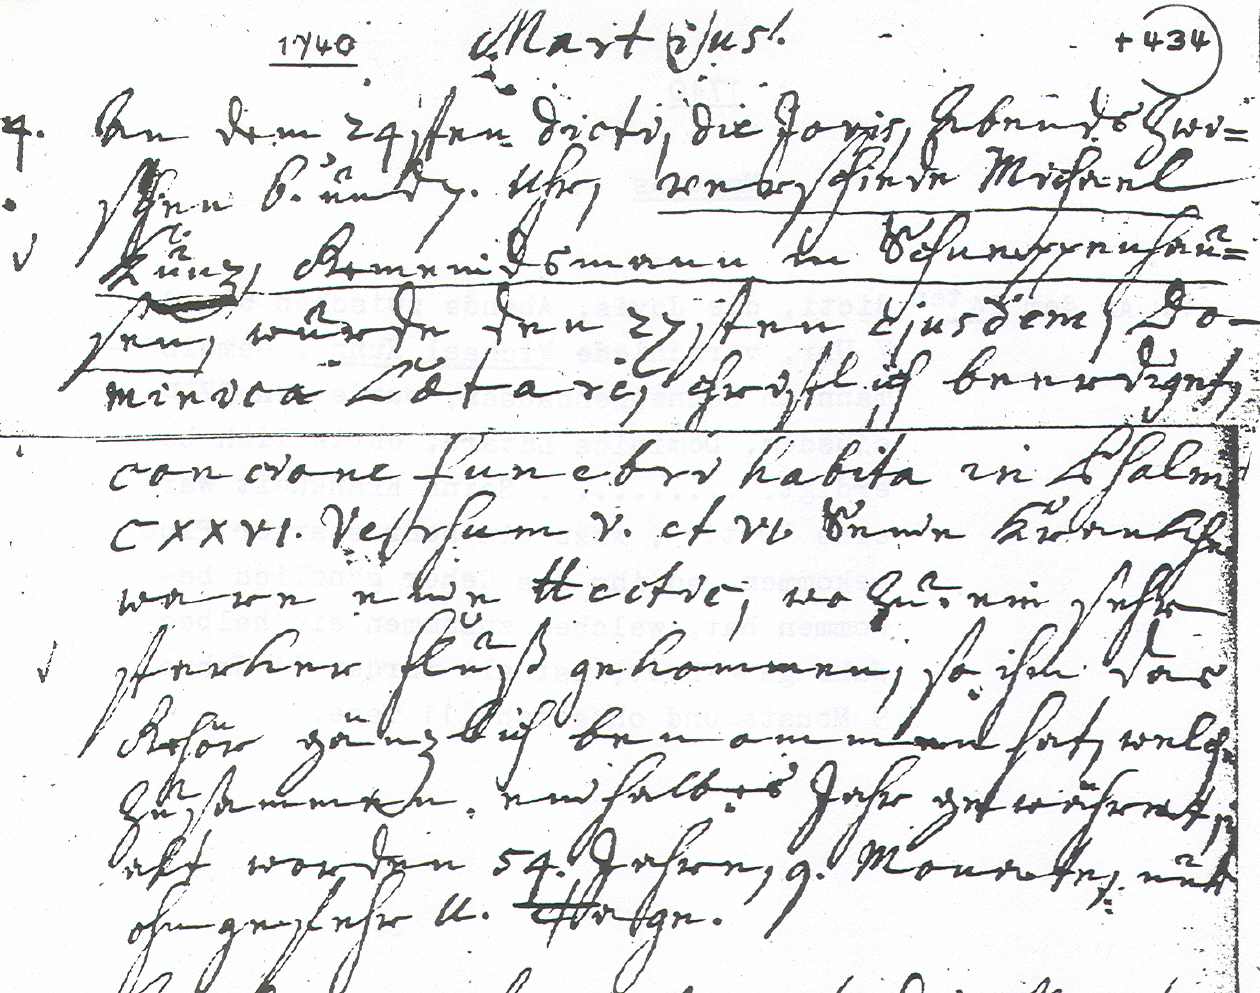 1740 Martius. +434
4. An dem 24sten dicti, die Jovis, Abends Zwi=
schen 6. und 7. Uhr, verschiede Michael
Künz, Gemeindsmann in Schneppenhau=
sen, wurde den 27sten ejusdem, Do-
minica Lætare, christlich beerdiget,
concione funebri habita in Psalm
CXXVI. Versuum V. et VI. Seine Kranckhe
ware eine Hectic, wozu ein sehr
starcker Fluß gekommen, so ihm das
Gehör gäntzlich benommen hat, welche
zusammen ein halbes Jahr gewähret,
alt worden 54. Jahre, 9. Monate, und
ohngefehr 11. Tage.